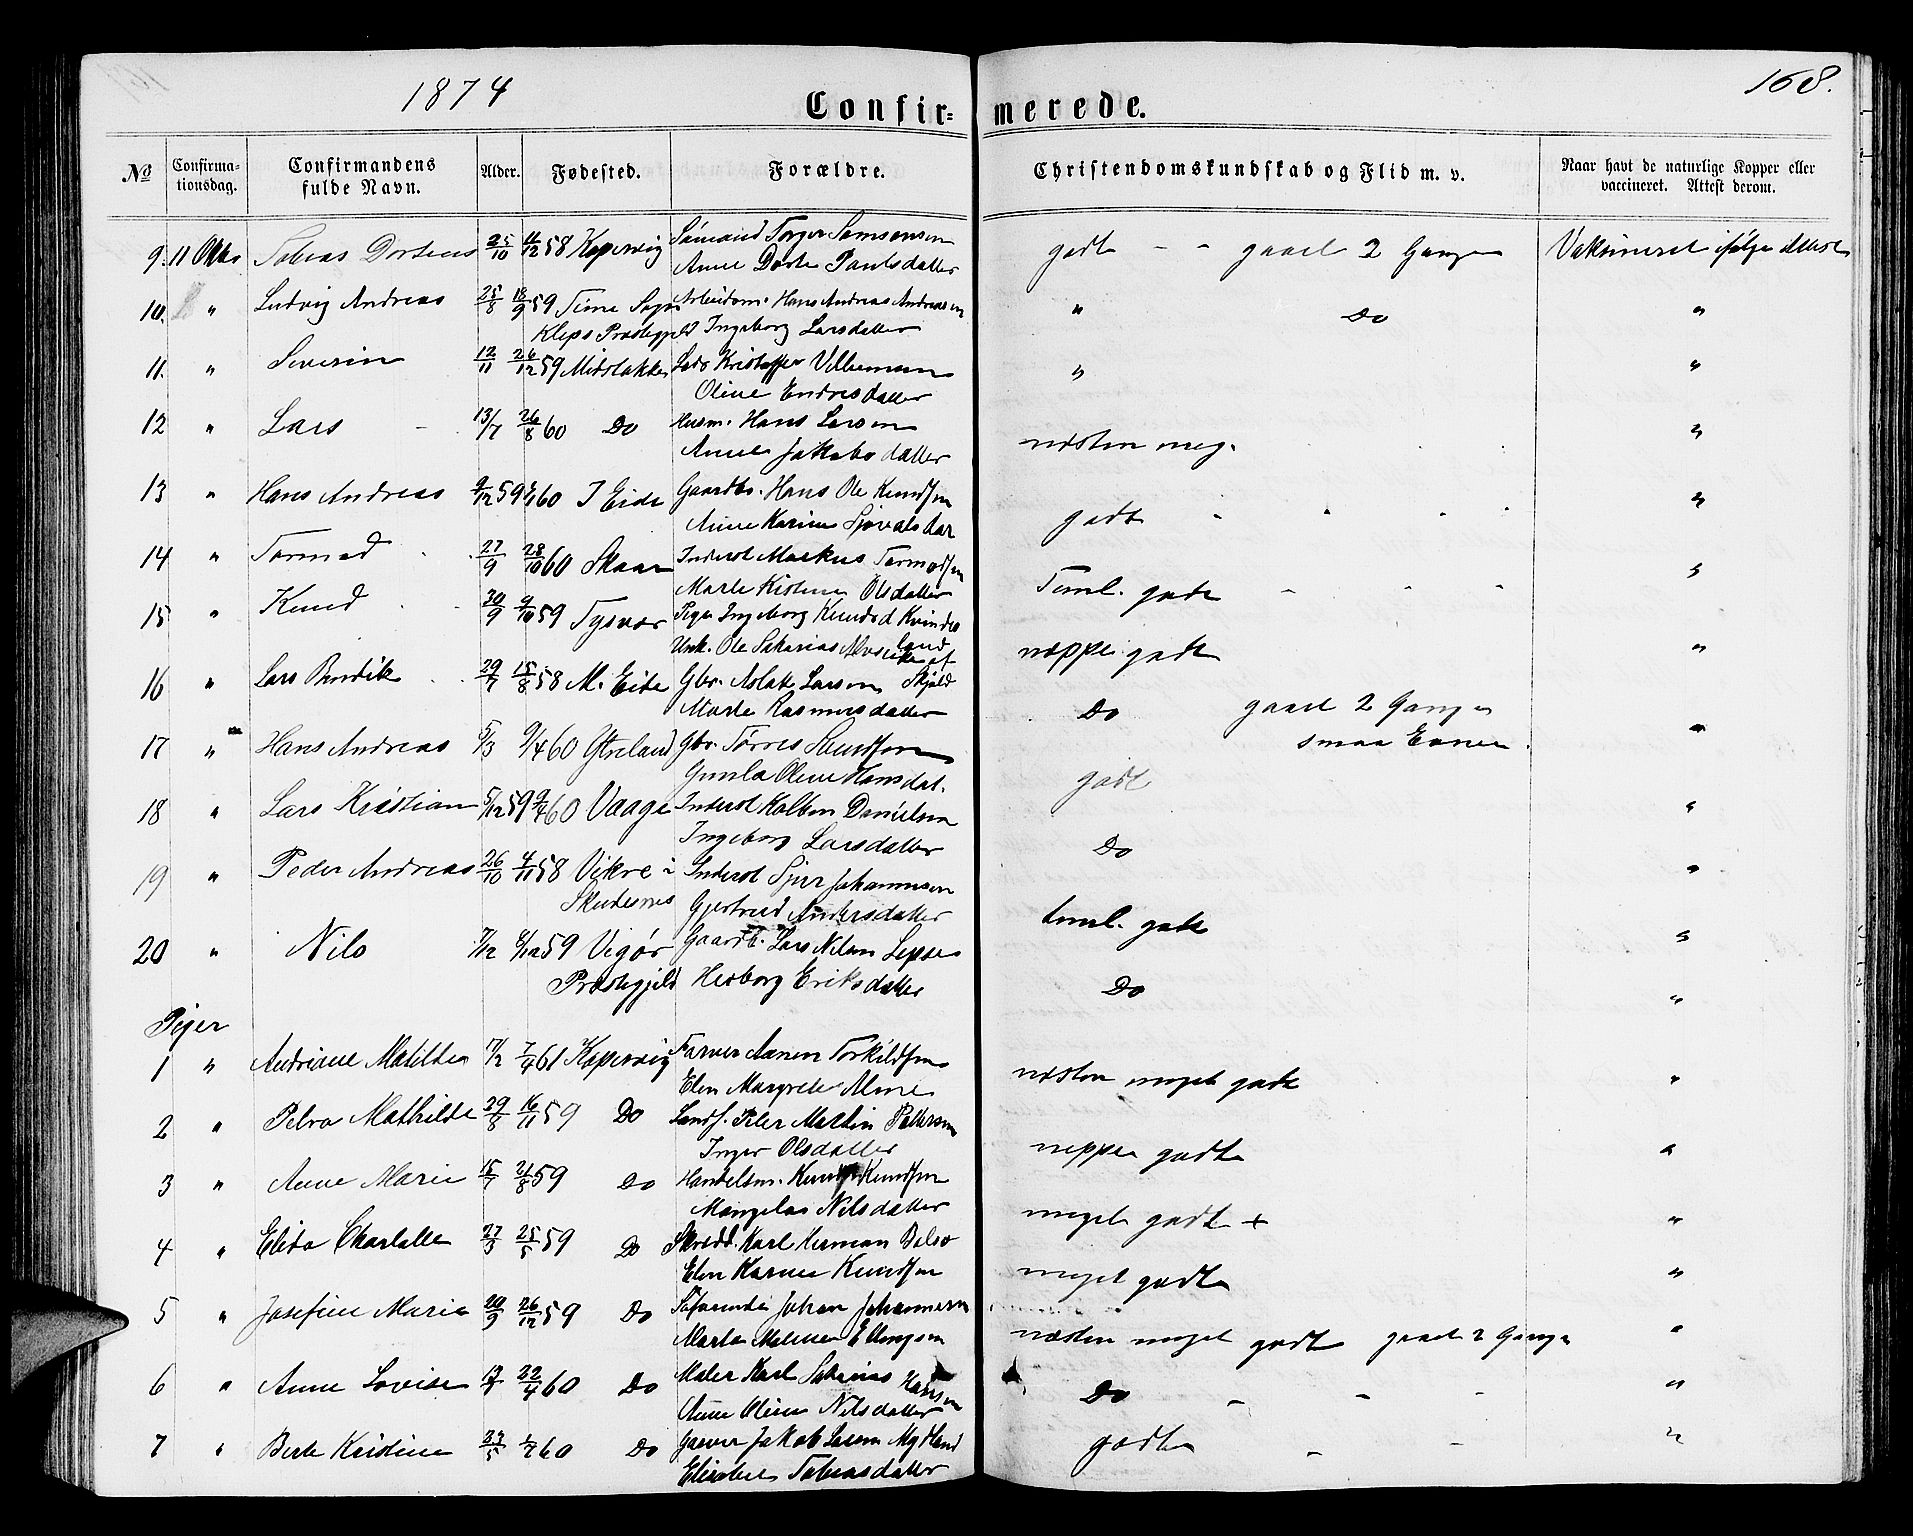 1874
168.
Confir= merede.
No
Confirma-
tionsdag.
Confirmandens
fulde Navn.
Alder.
Fødested.
Forældre.
Christendomskundskab og Flid m. v.
Naar havt de naturlige Kopper eller
vaccineret. Attest derom.
9. 11 Okbr Tobias Dorteus 25/10 11/12 58 Kopervig Sømand Torger Samsonsen godt - - gaaet 2 Gange Vaksineret ifølge Attest
Anne Dorte Paulsdatter
10. " Ludvig Andreas 25/8 18/9 59 Time Sogn Arbeidsm. Hans Andreas Andreasen " Do "
Kleps Præstegjeld Ingeborg Larsdatter
11. " Severin 12/11 26/12 59 Midstokke Lods Kristoffer Villumsen " "
Oline Endresdatter
12 " Lars 13/7 26/8 60 Do Husm. Hans Larsen næsten meg. "
Anne Jakobsdatter
13 " Hans Andreas 9/12 59 60 I Eide Gaardbr. Hans Ole Knudsen godt "
Anne Karine Sjovalsdat
14 " Tormod 27/9 28/10 60 Skaar Inderst Markus Tormodsen Teml. godt "
Marte Kistine Olsdatter
15 " Knud 20/9 9/10 59 Tysvær Pige Ingeborg Knudsd Kvindes neppe godt "
Unk. Ole Sakarias land
af
16 " Lars Bendik 29/7 15/8 58 M. Eide Gbr. Aslak Larsen Skjold Do gaaet 2 Gange "
Marte Rasmusdatter smaa Evner.
17 " Hans Andreas 5/3 9/4 60 Ytreland Gbr. Torres Knudsen godt "
Gunla Oline Hansdat.
18 " Lars Kristian 5/12 59 9/4 60 Vaage Inderst Kolben Danielsen Do "
Ingeborg Larsdatter
19 " Peder Andreas 26/10 4/11 58 Vikre i Inderst Sjur Johannessen teml. godt "
Skudesnes Gjertrud Andersdatter
20 " Nils 7/12 59 Vigør Gaardb. Lars Nilsen Do "
Præstegjeld Herborg Eriksdatter
Piger
1 " Andriane Matilde 7/2 7/4 61 Kopervig Farver Aanen Torkildsen næsten meget godt "
Elen Margrete Alne
2 " Petra Mathilde 29/8 16/11 59 Do Peter Martin Pettersen neppe godt "
Inger Olsdatter
3 " Anne Marie 15/7 21/8 59 Do Handelsm. Knud Knudsen meget godt + "
Mangela Nilsdatter
4 " Elida Charlotte 27/3 25/5 59 Do Skrædd. Karl Herman meget godt "
Elen Karine Knudsen
5 " Josefine Marie 20/9 26/12 59 Do Søfarende Johan Johannesen næsten meget godt gaaet 2 Gange "
Marta Malene Ellingsen
6 " Anne Lovise 22/4 60 Do Maler Karl Sakarias Hansen Do - - - "
Anne Oline Nilsdatter
7 " Berte Kristine 27/5 1/7 60 Do Garver Jakob Larsen Mydland godt - - "
Tobiasdatter